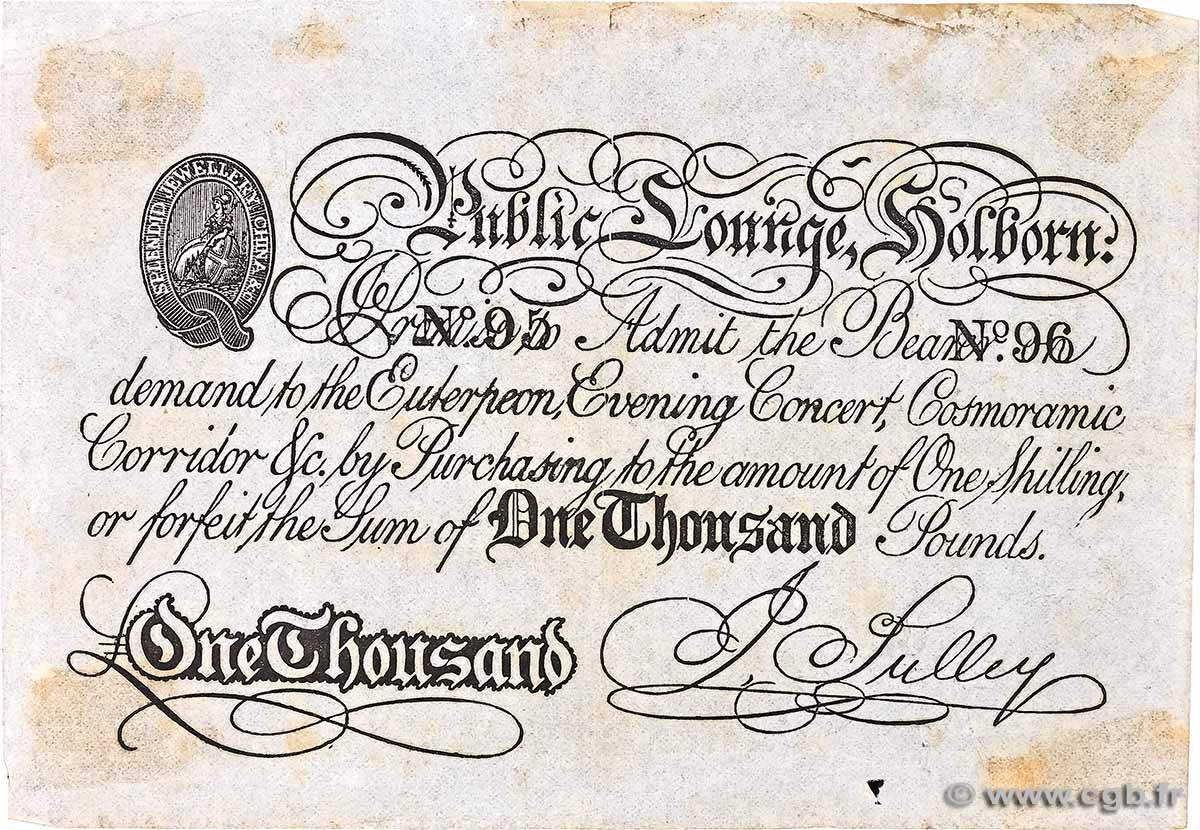 SPLENDID JEWELLERY CHINA &c.
Public Lounge, Holborn:
I Promise to Admit the Bearer on
No. 95 No. 96
demand to the Euterpeon, Evening Concert, Cosmoramic
Corridor &c. by Purchasing to the amount of One Shilling,
or forfeit the Sum of One Thousand Pounds.
£One Thousand
J. Sulley
© www.cgb.fr